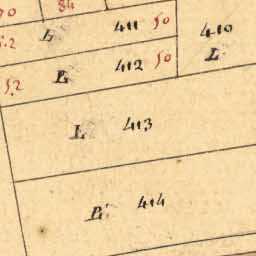 84
L 411 50
410
L
L 412 50
52
L 413
L 414